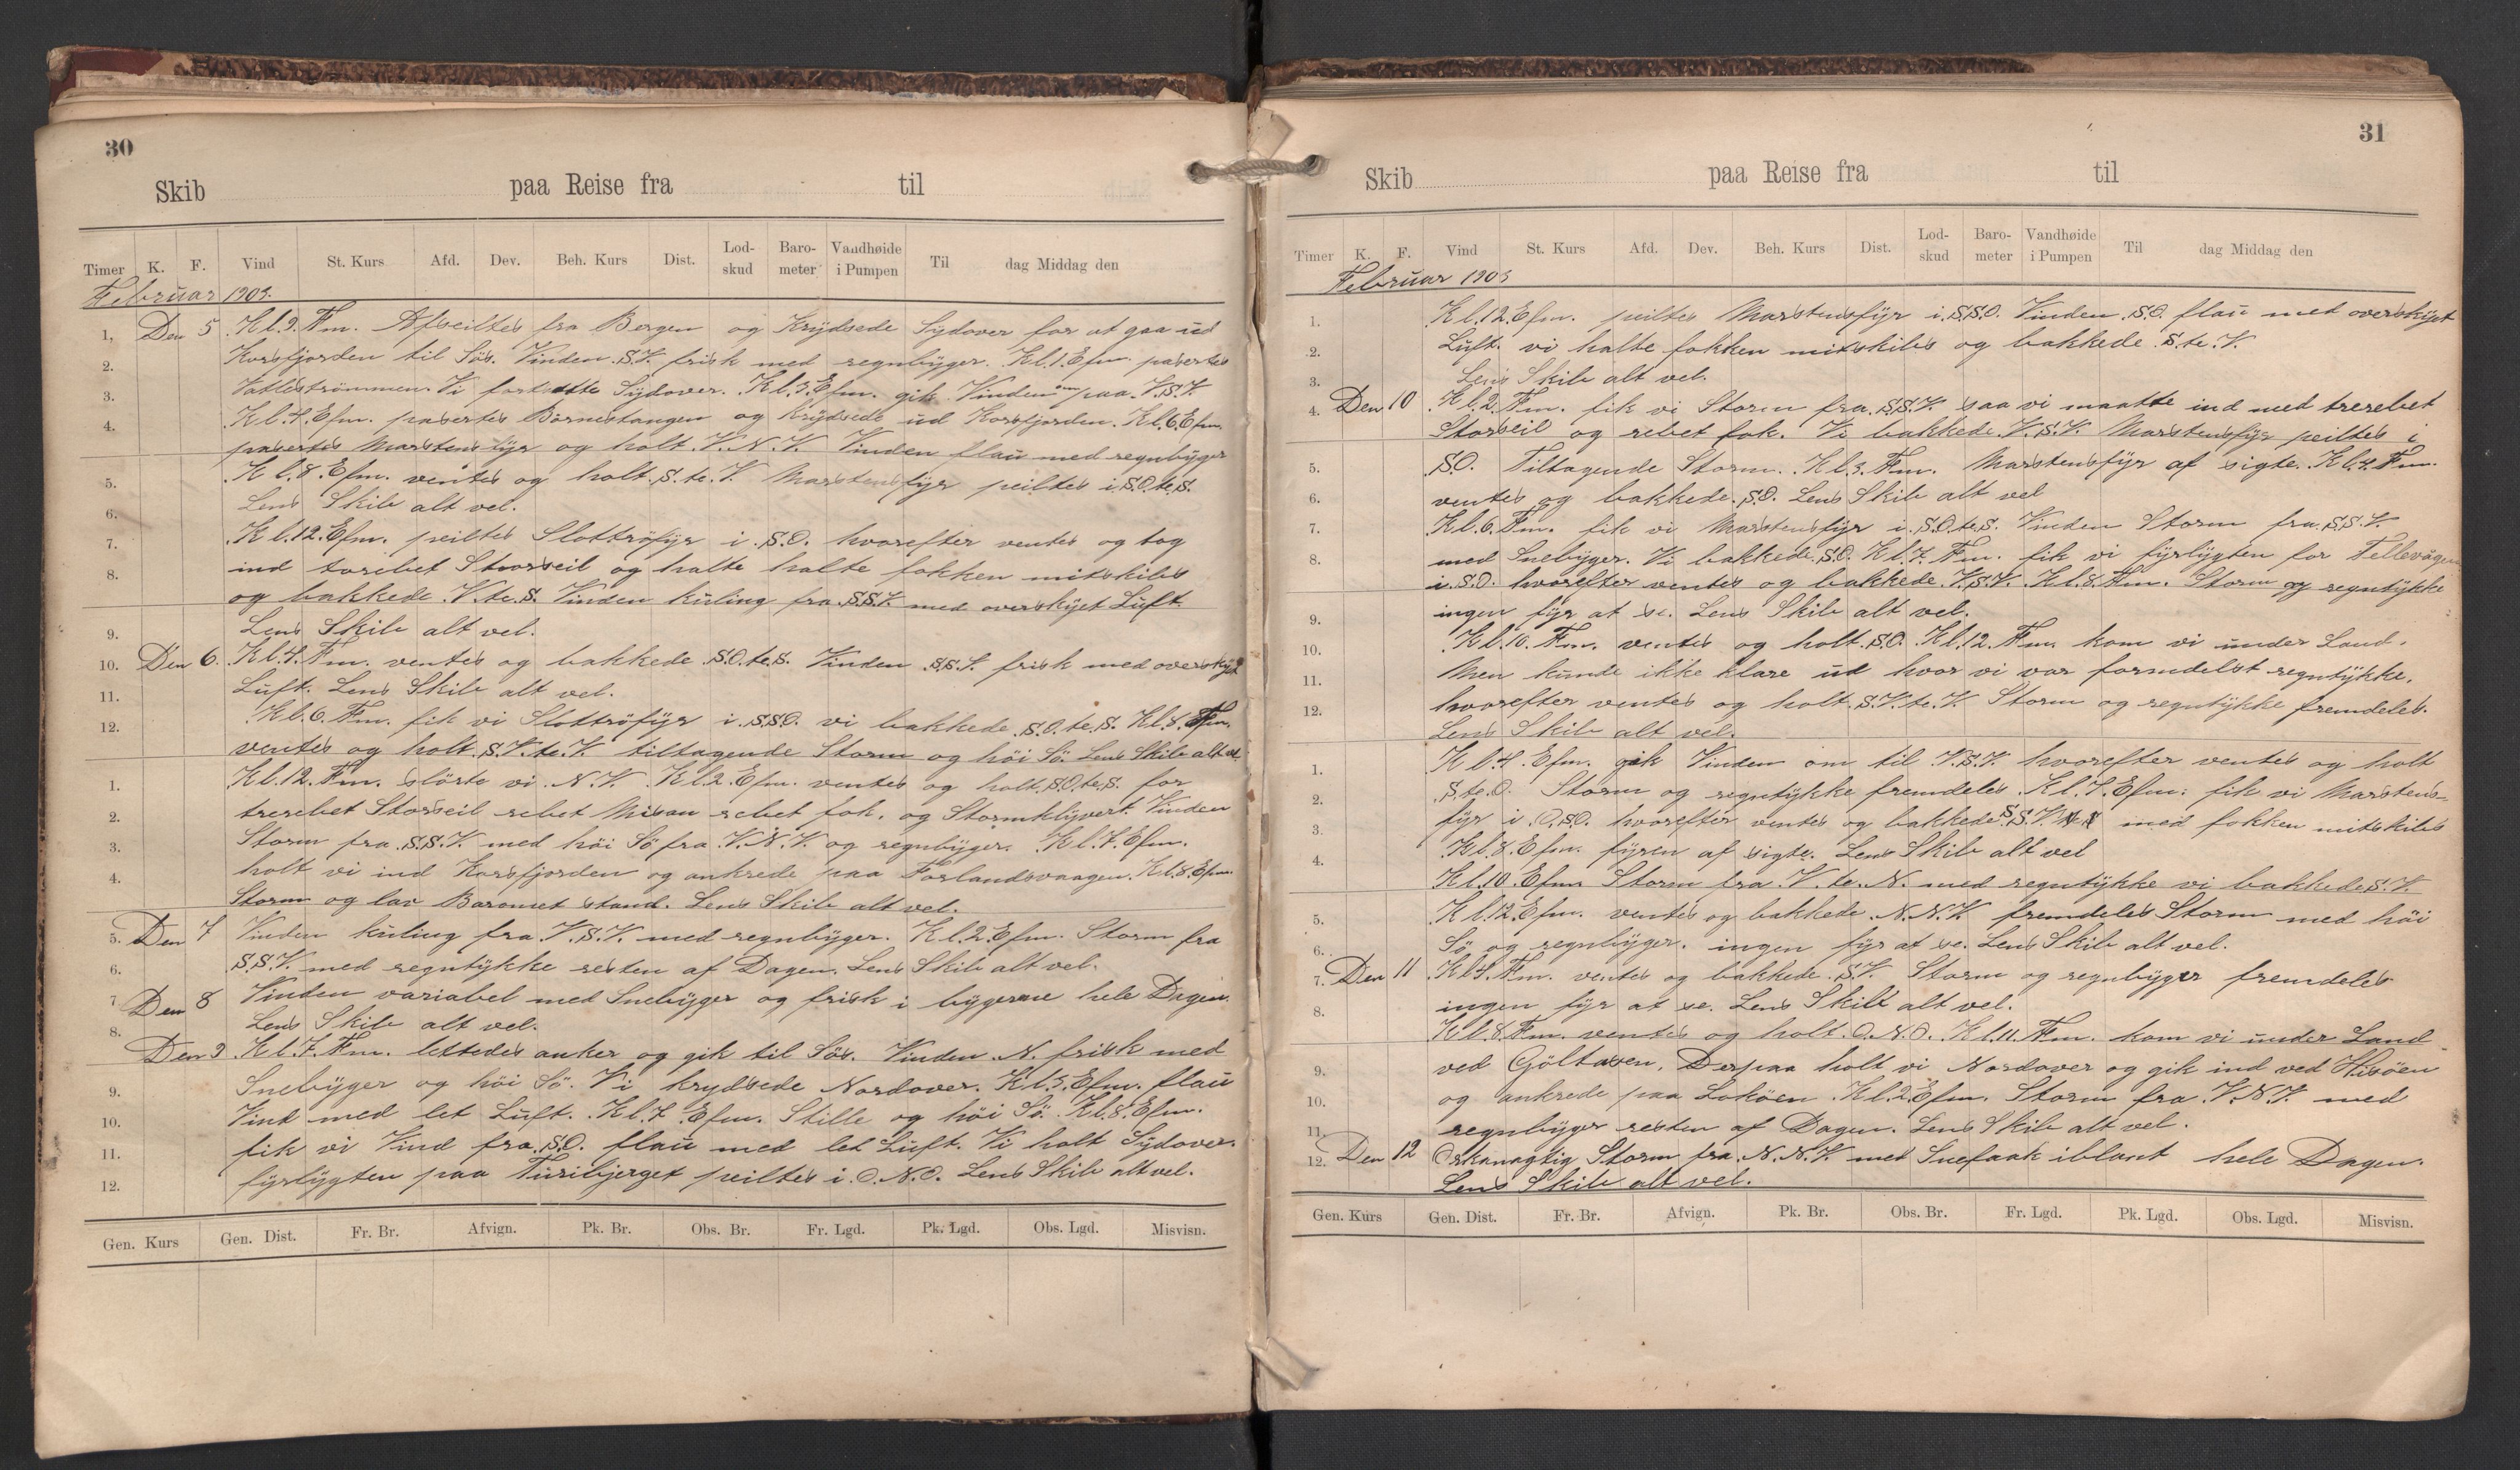 30
Skib paa Reise fra til
Timer K. F. Vind St. Kurs Afd. Dev. Beh. Kurs Dist. Lod-skud Baro-meter Vandhøide i Pumpen Til dag Middag den
Februar 1903.
1, Den 5 Kl.9.Fm. Afseiltes fra Bergen og Krÿdsede Sÿdover for at gaa ud
2. Korsfjorden til Søs. Vinden S.V. frisk med regnbÿger. Kl.1.Efm. pasertes
3. Vatlestrømmen. Vi fortsatte Sÿdover. Kl.3.Efm. gik Vinden om paa V.S.V.
4. Kl.4.Efm. pasertes Bornestangen og krÿdsede ud Korsfjorden. Kl.6.Efm.
pasertes Marstensfÿr og holt V.N.V. Vinden flau med regnbÿger
5. Kl.8.Efm. ventes og holt S.te.V. Marstensfÿr peiltes i S.O.te.S.
6. Lens Skib alt vel.
7. Kl.12.Efm. peiltes Slotterøfÿr i S.O. hvorefter ventes og tog
8. ind torebet Storseil og halte halte fokken mitskibs
og bakkede V.te.S. Vinden kuling fra S.S.V. med overskÿet Luft
9. Lens Skib alt vel.
10. Den 6. Kl.4.Fm. ventes og bakkede S.O.te.S. Vinden S.S.V. frisk med overskÿet
11. Luft. Lens Skib alt vel.
12. Kl.6.Fm. fik vi Slotterøfÿr i S.S.O. vi bakkede S.O.te.S. Kl.8.Fm.
ventes og holt S.V.te.V. tiltagende Storm og høi Sø Lens Skib alt vel.
1. Kl.12.Fm. slørte vi N.V. Kl.2.Efm. ventes og holt S.O.te.S. for
2. trerebet Storseil rebet Misan rebet fok. og Stormklÿvert. Vinden
3. Storm fra S.S.V. med høi Sø fra V.N.V. og regnbÿger. Kl.7.Efm.
4. holt vi ind Korsfjorden og ankrede paa Forlandsvaagen. Kl.8.Efm.
Storm og lav Baromet stand. Lens Skib alt vel.
5. Den 7 Vinden kuling fra V.S.V. med regnbÿger. Kl.2.Efm. Storm fra
6. S.S.V. med regntÿkke resten af Dagen. Lens Skib alt vel.
7 Den 8 Vinden variabel med Snebÿger og frisk i bÿgerne hele Dagen.
8. Lens Skib alt vel.
Den 9 Kl.7.Fm. lettedes anker og gik til Søs. Vinden N. frisk med
9. Snebÿger og høi Sø. Vi krydsede Nordover. Kl.5.Efm. flau
10. Vind med let Luft. Kl.7 Efm. Stille og høi Sø. Kl.8.Efm.
11. fik vi Vind fra S.O. flau med let Luft. Vi holt Sÿdover.
12. fÿrlÿgten paa Turibjerget peiltes i O.N.O. Lens Skib alt vel.
Gen. Kurs Gen. Dist. Fr. Br. Afvign. Pk. Br. Obs. Br. Fr. Lgd. Pk. Lgd. Obs. Lgd. Misvisn.
31
Skib paa Reise fra til
Timer K. F. Vind St. Kurs Afd. Dev. Beh. Kurs Dist. Lod-skud Baro-meter Vandhøide i Pumpen Til dag Middag den
Februar 1903
1. Kl.12.Efm. peiltes Marstensfÿr i S.S.O. Vinden S.O. flau med overskÿet
2. Luft. vi halte fokken mitskibs og bakkede S.te.V.
3. Lens Skib alt vel.
4. Den 10 Kl.2.Fm. fik vi Storm fra S.S.V. saa vi maatte ind med trerebet
Storseil og rebet fok. Vi bakkede V.S.V. Marstensfÿr peiltes i
5. S.O. Tiltagende Storm. Kl.3.Fm. Marstensfÿr af sigte. Kl.4.Fm.
6. ventes og bakkede S.O. Lens Skib alt vel
7. Kl.6.Fm. fik vi Marstensfÿr i S.O.te.S. Vinden Storm fra S.S.V.
8. med Snebÿger. Vi bakkede S.O. Kl.7.Fm. fik vi fÿrlÿgten for Fellevågen
i S.O. hvorefter ventes og bakkede V.S.V. Kl.8.Fm. Storm og regntÿkke
9. ingen fÿr at se. Lens Skib alt vel.
10. Kl.10.Fm. ventes og holt S.O. Kl.12.Fm. kom vi under Land.
11. Men kunde ikke klare ud hvor vi var formedelst regntÿkke.
12. hvorefter ventes og holt S.V.te.V. Storm og regntÿkke fremdeles.
Lens Skib alt vel.
1. Kl.4.Efm. gik Vinden om til V.S.V. hvorefter ventes og holt
2. S.te.O. Storm og regntÿkke fremdeles. Kl.7.Efm. fik vi Marstens-
3. fÿr i O.S.O. hvorefter ventes og bakkede S.S.V. med fokken mitskibs
4. Kl.8.Efm. fÿren af sigte. Lens Skib alt vel
Kl.10.Efm. Storm fra V.te.N. med regntÿkke vi bakkede S.V.
5. Kl.12.Efm. ventes og bakkede N.N.V. fremdeles Storm med høi
6. Sø og regnbÿger. ingen fÿr at se. Lens Skib alt vel.
7. Den 11 Kl.4.Fm. ventes og bakkede S.V. Storm og regnbÿger fremdeles
8. ingen fÿr at se. Lens Skib alt vel.
Kl.8.Fm. ventes og holt O.N.O. Kl.11.Fm. kom vi under Land
9. ved Gøltasen. Derpaa holt vi Nordover og gik ind ved Hisøen
10. og ankrede paa Lokøen Kl.2.Efm. Storm fra V.N.V. med
11 regnbÿger resten af Dagen. Lens Skib alt vel.
12. Den 12 Orkanagtig Storm fra N.N.V. met Snefaak iblant hele Dagen.
Lens Skib alt vel.
Gen. Kurs Gen. Dist. Fr. Br. Afvign. Pk. Br. Obs. Br. Fr. Lgd. Pk. Lgd. Obs. Lgd. Misvisn.